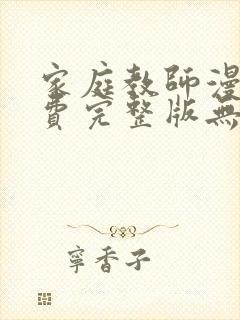 家庭教師漫
費完整版無
寧香子